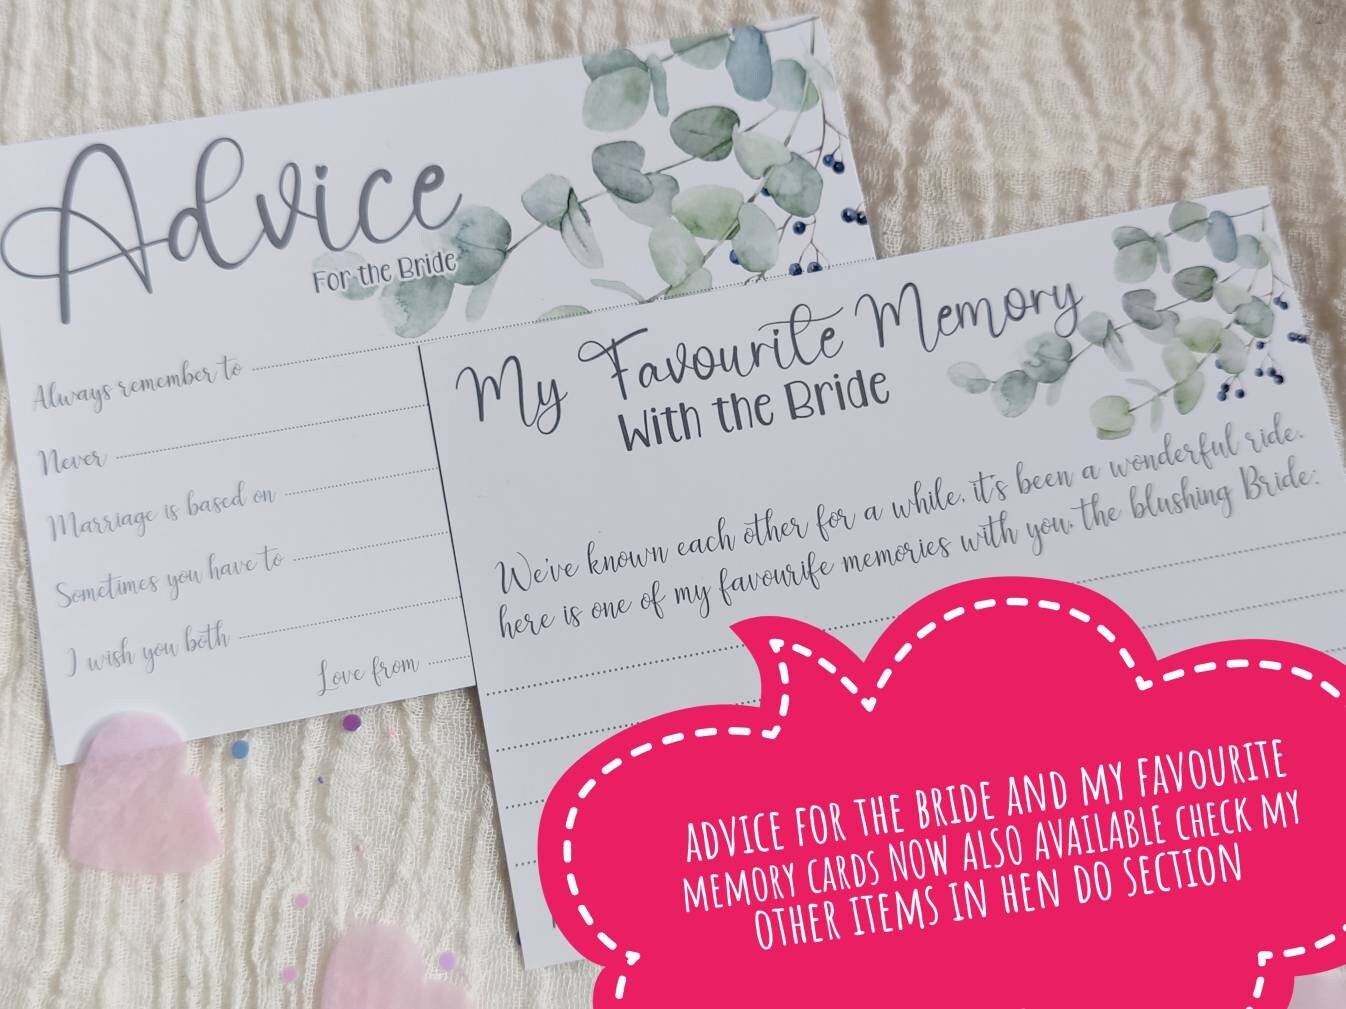 Advice
For the Bride
Always remember to
Never
Marriage is based on
Sometimes you have to
I wish you both
Love from
My Favourite Memory
With the Bride
We've known each other for a while, it's been a wonderful ride,
here is one of my favourife memories with you, the blushing Bride:
ADVICE FOR THE BRIDE AND MY FAVOURITE
MEMORY CARDS NOW ALSO AVAILABLE CHECK MY
OTHER ITEMS IN HEN DO SECTION